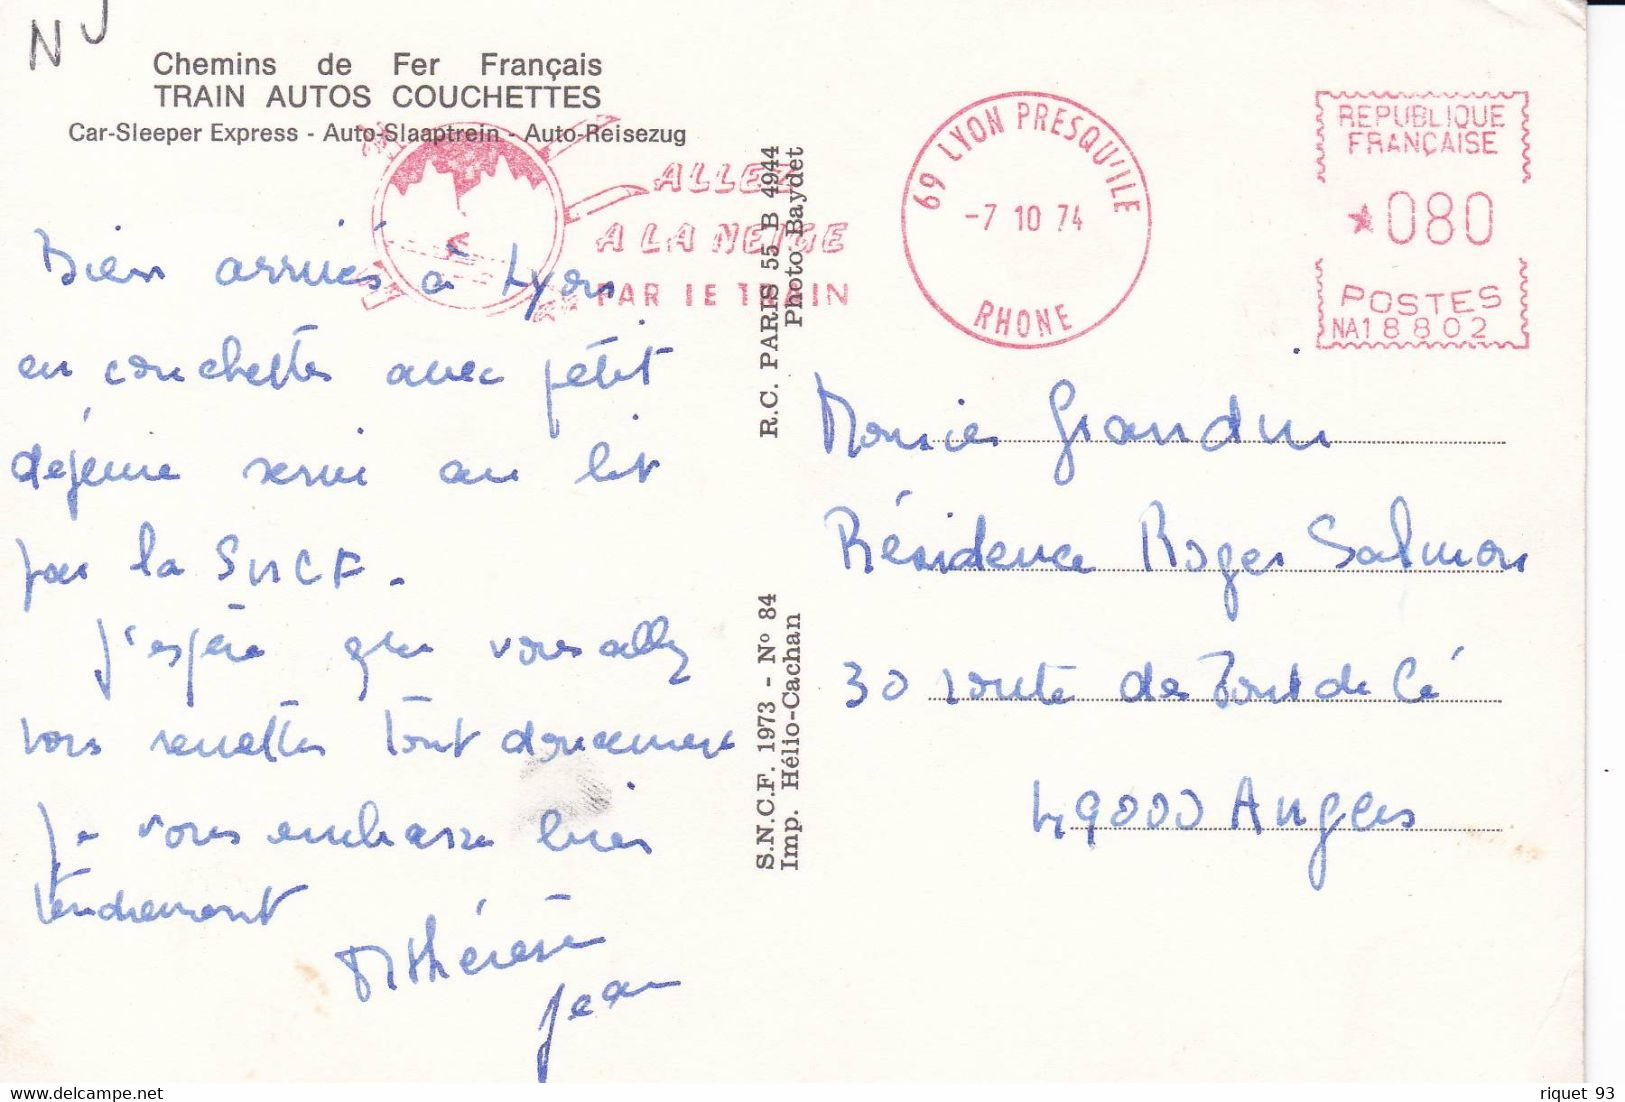 NJ
Chemins de Fer Français
TRAIN AUTOS COUCHETTES
Car-Sleeper Express - Auto-Slaaptrein - Auto-Reisezug
ALLER
A LA NEIGE
PAR LE TRAIN
69 LYON PRESQU'ILE
-7 10 74
RHONE
REPUBLIQUE
FRANÇAISE
*080
POSTES
NA18802
Bien arrivés à Lyon
en couchettes avec petit
déjeuné servi au lit
par la SNCF.
J'espère que vous allez
vous remettre tout doucement
Je vous embrasse bien
tendrement
MThérèse
Jean
R.C. PARIS 55 B 4944
Photo Baydet
S.N.C.F. 1973 - Nº 84
Imp. Hélio-Cachan
Monsieur Grandin
Résidence Roger Salmon
30 route des Ponts de Cé
49000 Angers
riquet 93